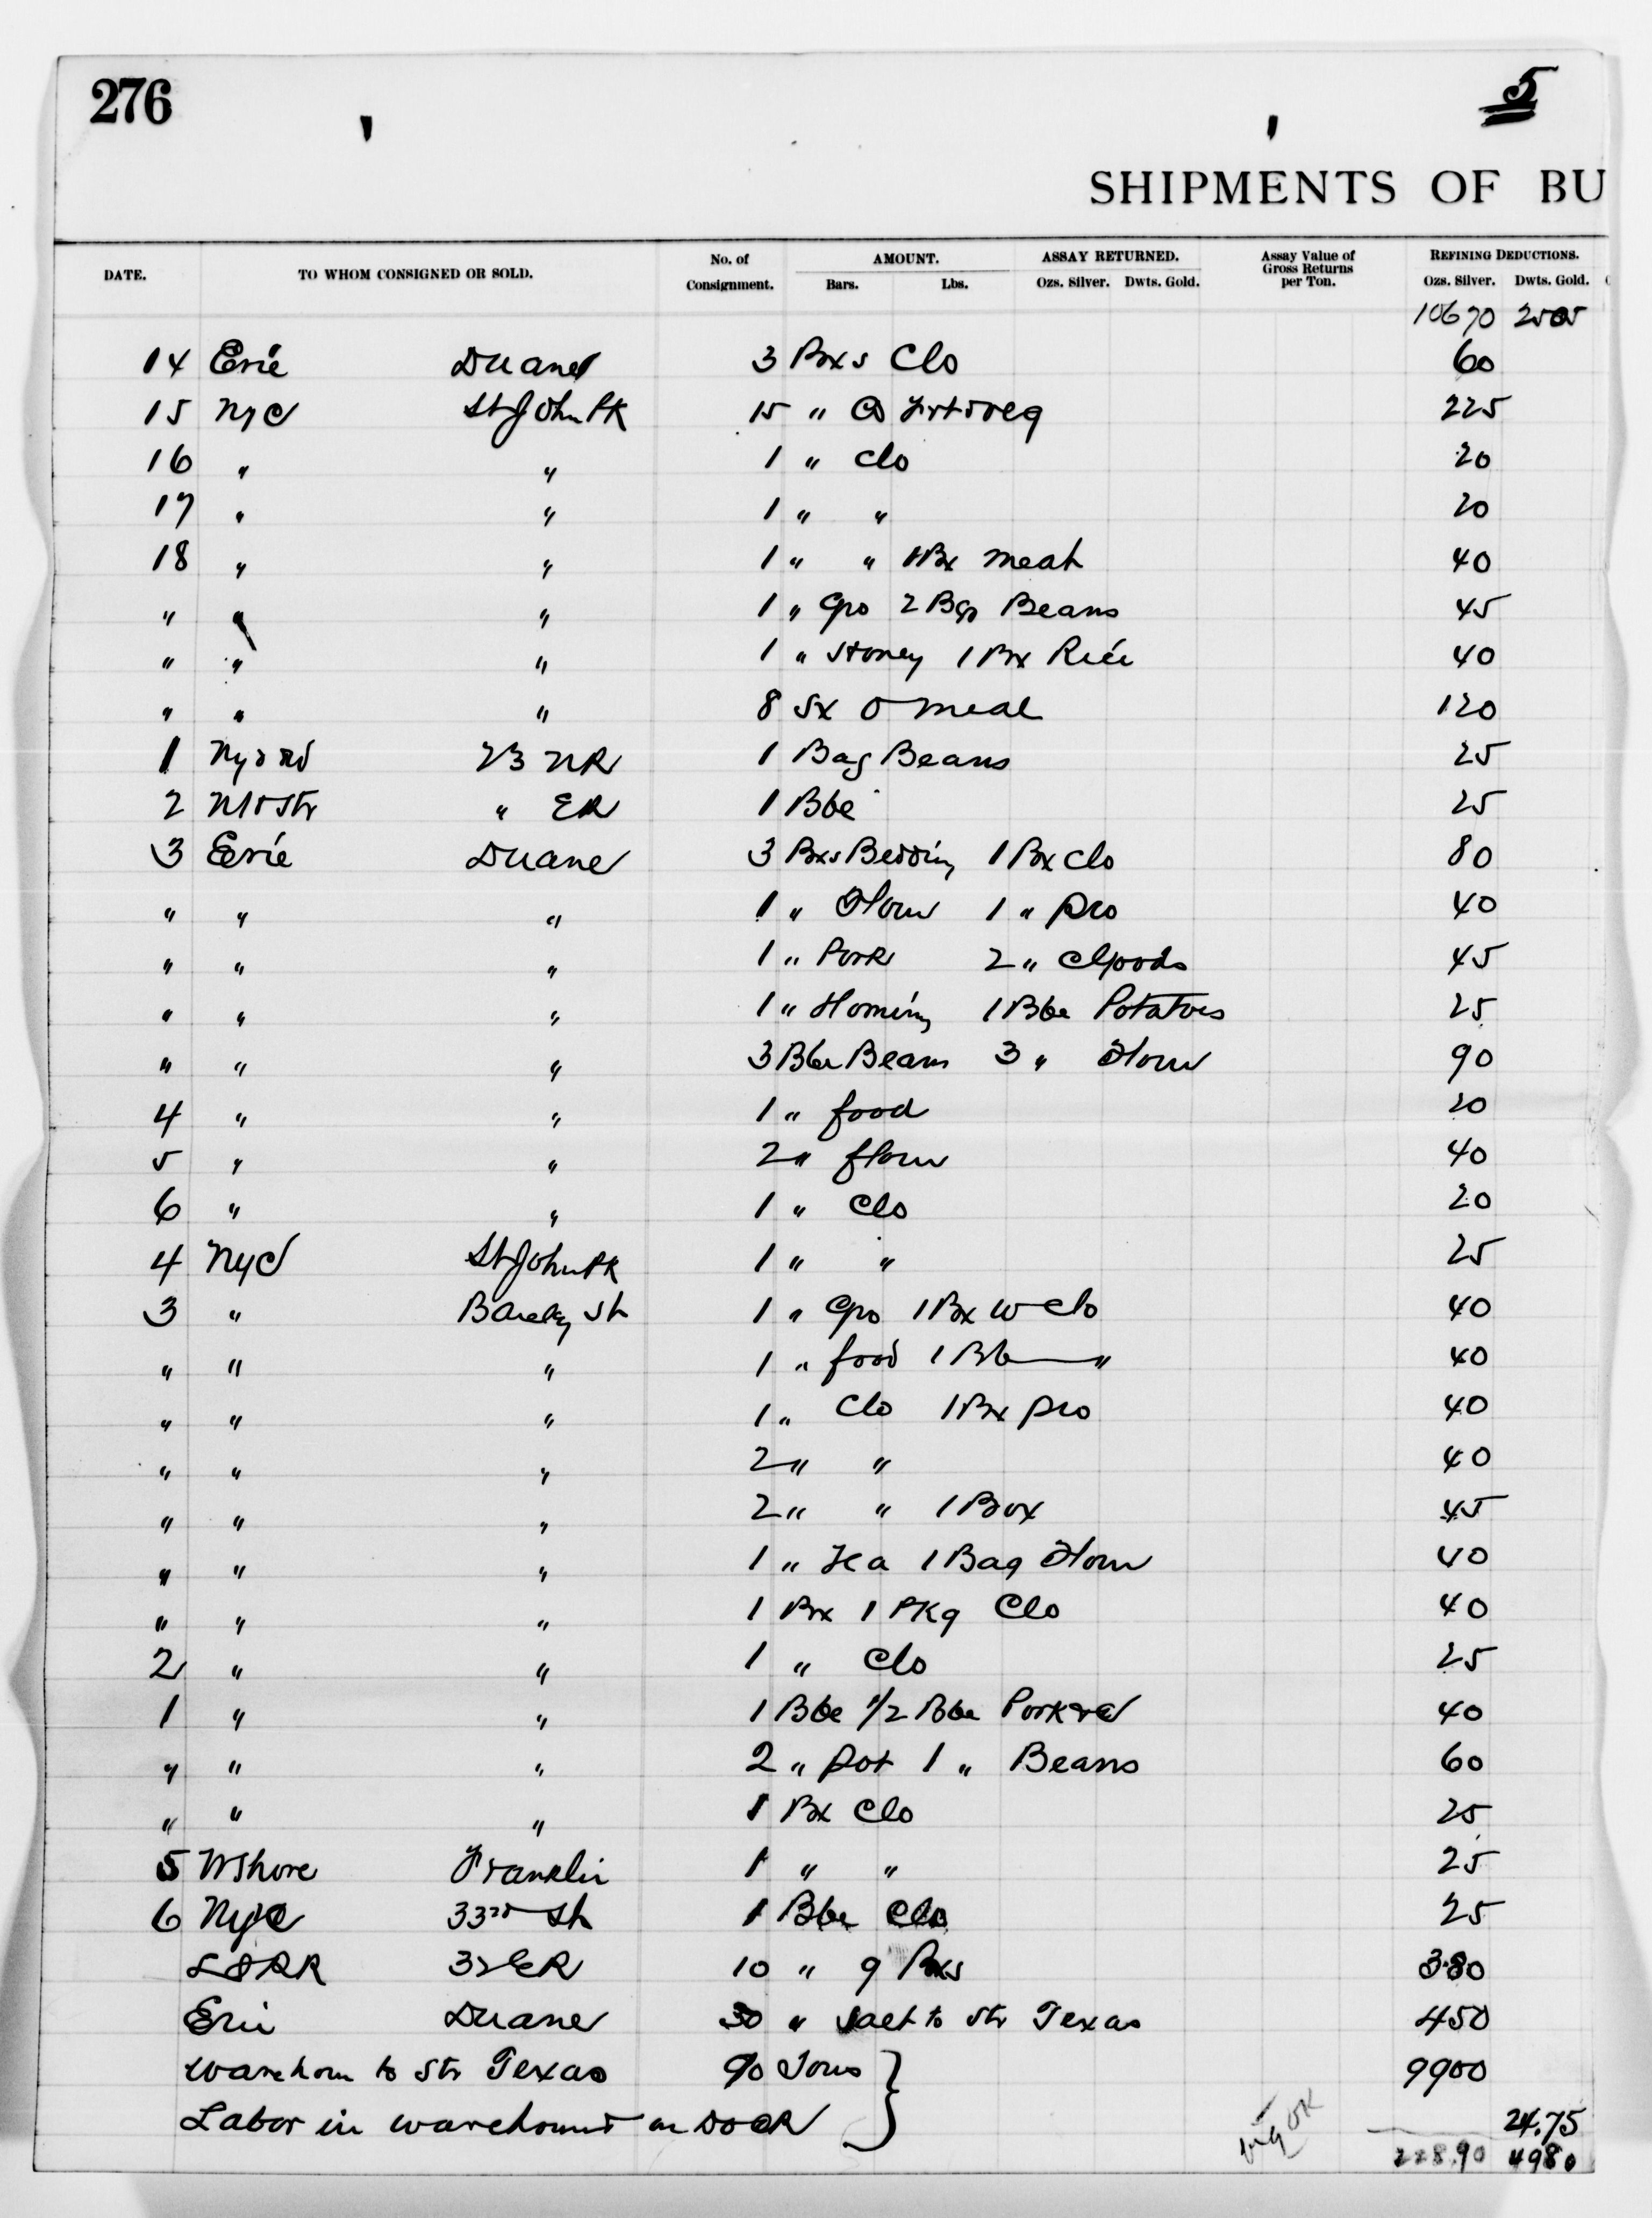 276
5
SHIPMENTS OF BU
DATE. TO WHOM CONSIGNED OR SOLD. No. of Consignment. AMOUNT. Bars. Lbs. ASSAY RETURNED. Ozs. Silver. Dwts. Gold. Assay Value of Gross Returns per Ton. REFINING DEDUCTIONS. Ozs. Silver. Dwts. Gold.
106 70 25 05
14 Erie Duane 3 Bxs Clo 60
15 NYC St John Pk 15 " 225
16 " " 1 " Clo 20
17 " " 1 " " 20
18 " " 1 " " 1 Bx Meat 40
" " " 1 " Gro 2 Bgs Beans 45
" " " 1 " Honey 1 Bx Rice 40
" " " 8 Sx O Meal 120
1 23 NR 1 Bag Beans 25
2 " ER 1 Bbl " 25
3 Erie Duane 3 Bxs Bedding 1 Bx Clo 80
" " " 1 " Flour 1 " Pro 40
" " " 1 " Pork 2 " C Goods 45
" " " 1 " Hominy 1 Bbl Potatoes 25
" " " 3 Bbl Beans 3 " Flour 90
4 " " 1 " food 20
5 " " 2 " flour 40
6 " " 1 " Clo 20
4 NYC St John Pk 1 " " 25
3 " Barclay St 1 " Gro 1 Bx W Clo 40
" " " 1 " food 1 Bbl " 40
" " " 1 " Clo 1 Bx Pro 40
" " " 2 " " 40
" " " 2 " " 1 Box 45
" " " 1 " Tea 1 Bag Flour 40
" " " 1 Bx 1 Pkg Clo 40
2 " " 1 " Clo 25
1 " " 1 Bbl 1/2 Bbl Pork 40
" " " 2 " Pot 1 " Beans 60
" " " 1 Bx Clo 25
5 W Shore Franklin 1 " " 25
6 NYC 33rd St 1 Bbl Clo 25
RR 32 ER 10 " 9 Bxs 380
Erie Duane 30 " Salt to Str Texas 450
Warehouse to Str Texas 90 Tons } 9900
Labor in warehouse on Dock 24.75
OK 228.90 4980